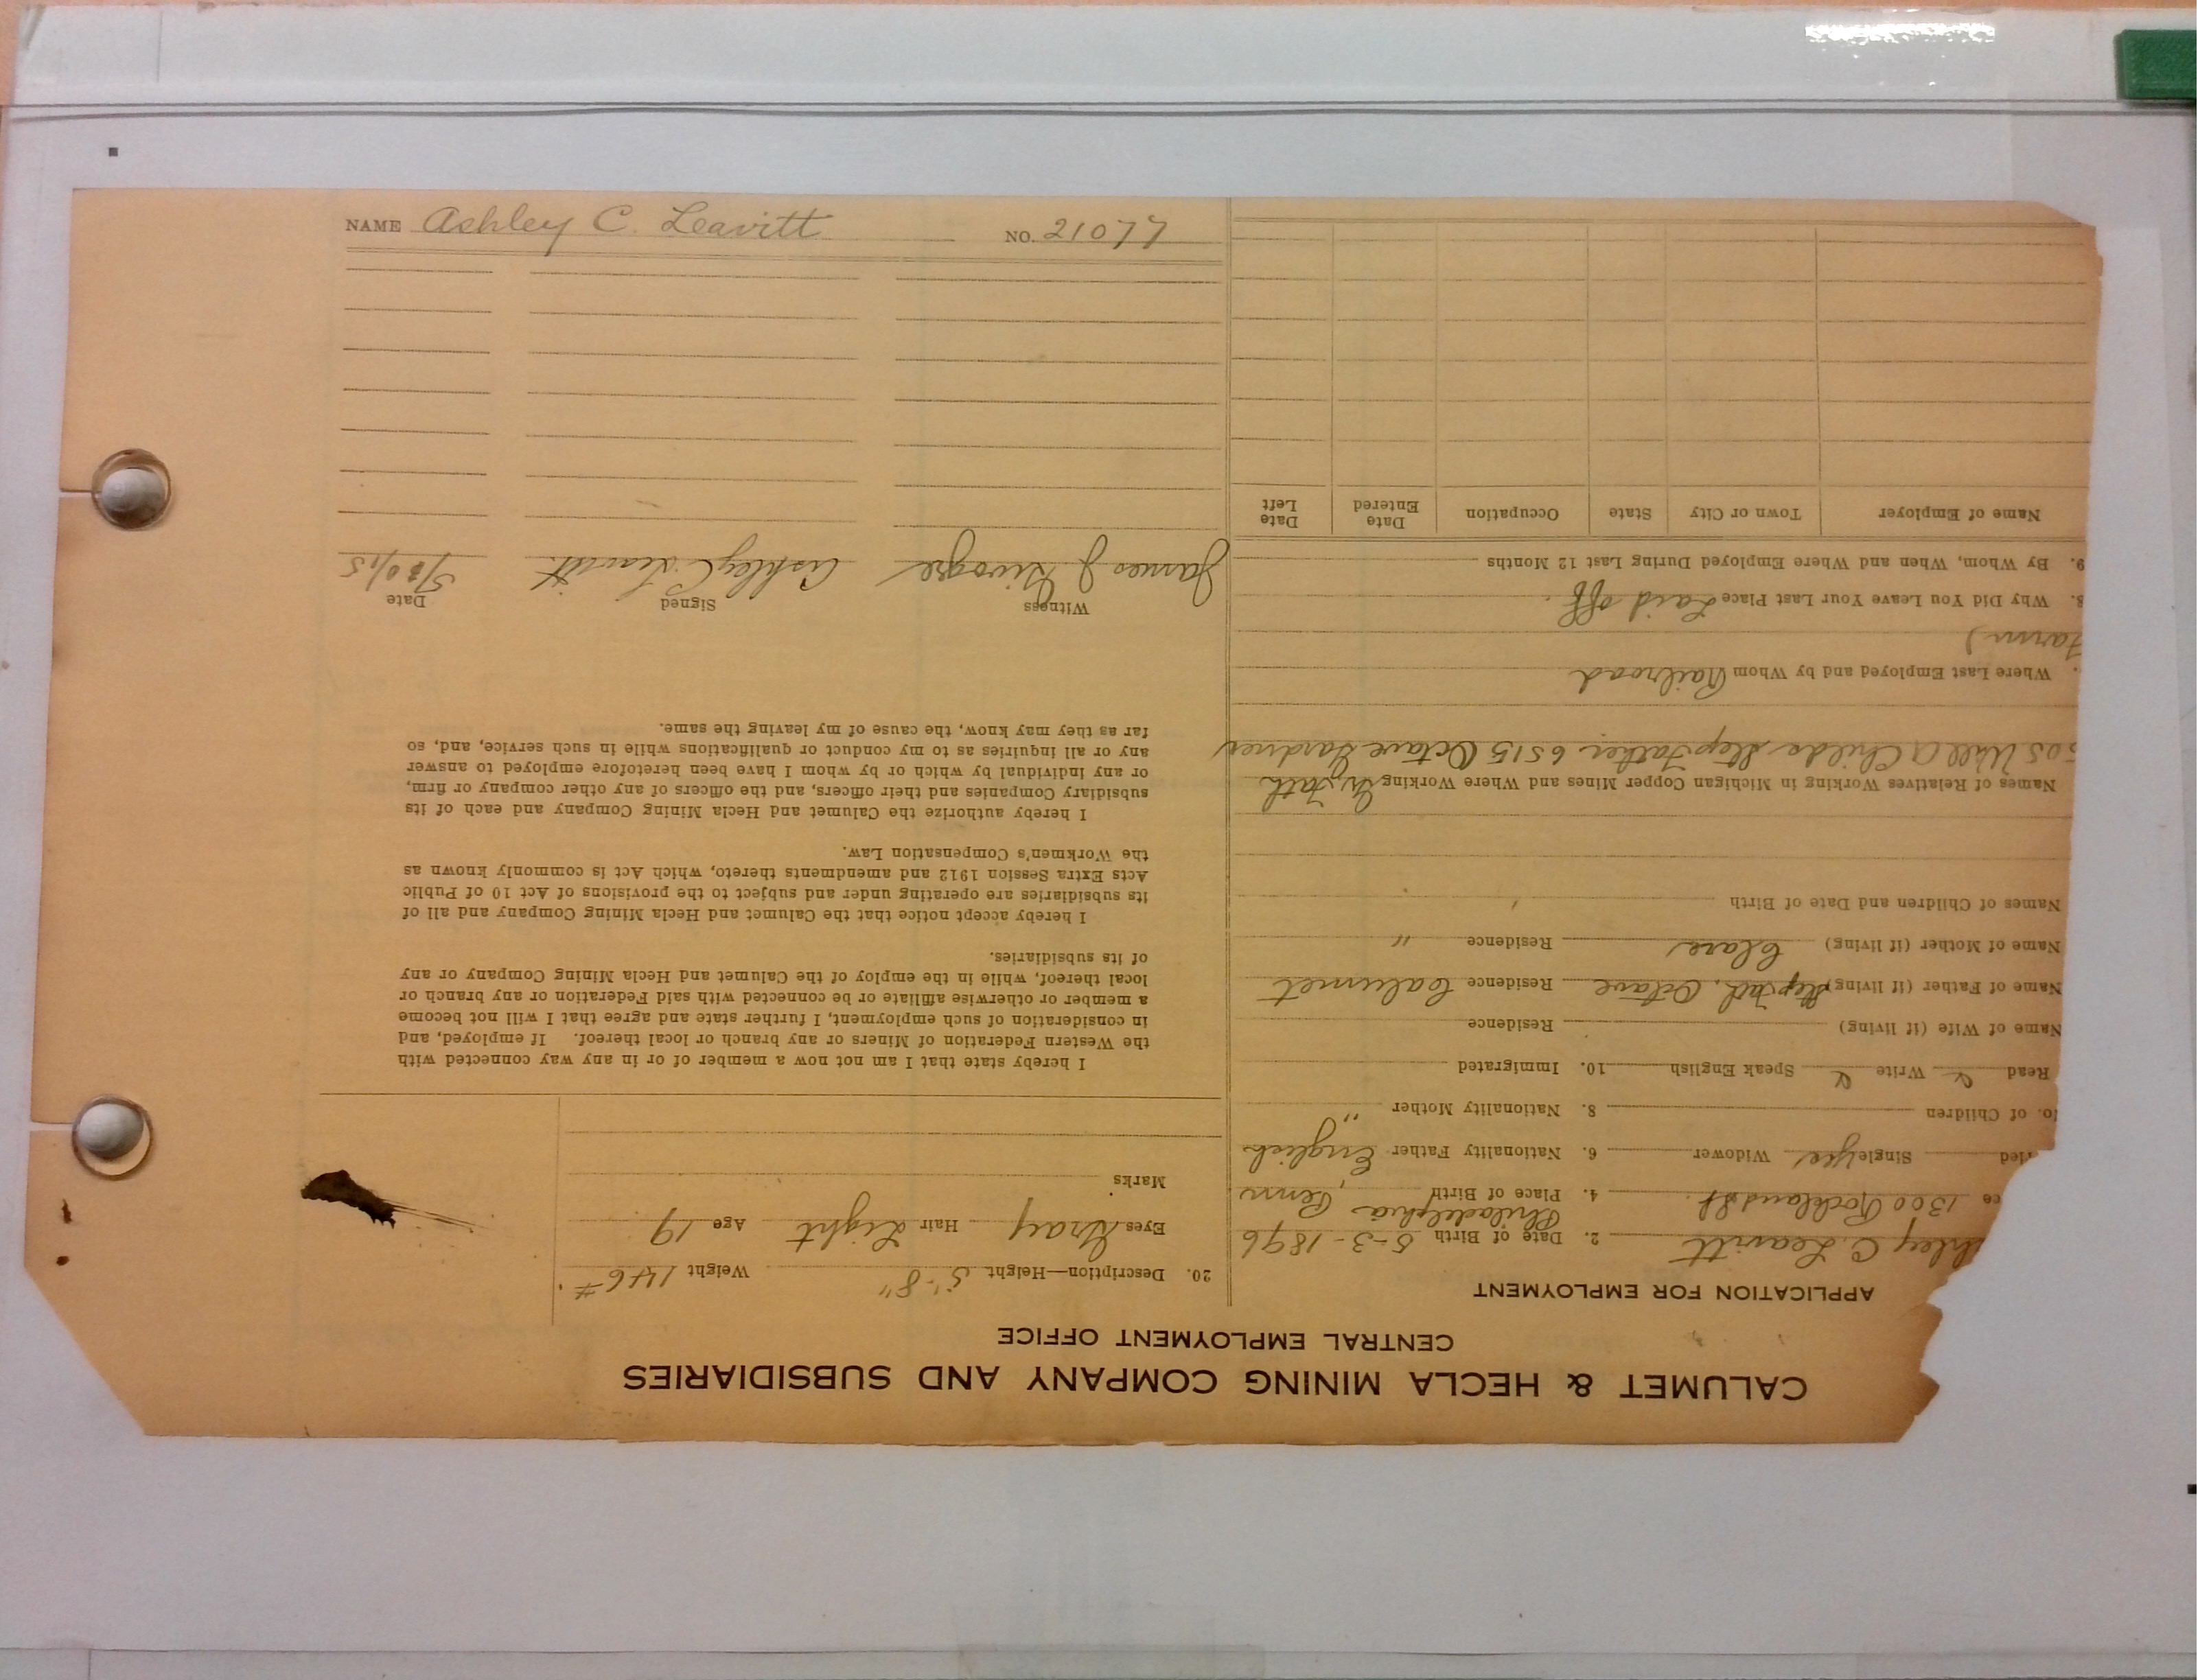 NAME Ashley C. Leavitt NO. 21077
CALUMET & HECLA MINING COMPANY AND SUBSIDIARIES
CENTRAL EMPLOYMENT OFFICE
APPLICATION FOR EMPLOYMENT
hley C. Leavitt 2. Date of Birth 5-3-1896
ce 1300 Rockland St. 4. Place of Birth Philadelphia, Penn
ried Single yes Widower 6. Nationality Father English
o. of Children 8. Nationality Mother "
Read Write Speak English 10. Immigrated
Name of Wife (if living) Residence
Name of Father (if living) Step Fath. Octave Residence Calumet
Name of Mother (if living) Clara Residence "
Names of Children and Date of Birth
Names of Relatives Working in Michigan Copper Mines and Where Working
505 Will A Childs Step Father 6515 Octave Gardner
Where Last Employed and by Whom Railroad
farm)
8. Why Did You Leave Your Last Place Laid off.
9. By Whom, When and Where Employed During Last 12 Months
Name of Employer Town or City State Occupation Date Entered Date Left
20. Description—Height 5'-8" Weight 146#
Eyes Gray Hair Light Age 19
Marks
I hereby state that I am not now a member of or in any way connected with
the Western Federation of Miners or any branch or local thereof. If employed, and
in consideration of such employment, I further state and agree that I will not become
a member or otherwise affiliate or be connected with said Federation or any branch or
local thereof, while in the employ of the Calumet and Hecla Mining Company or any
of its subsidiaries.
I hereby accept notice that the Calumet and Hecla Mining Company and all of
its subsidiaries are operating under and subject to the provisions of Act 10 of Public
Acts Extra Session 1912 and amendments thereto, which Act is commonly known as
the Workmen's Compensation Law.
I hereby authorize the Calumet and Hecla Mining Company and each of its
subsidiary Companies and their officers, and the officers of any other company or firm,
or any individual by which or by whom I have been heretofore employed to answer
any or all inquiries as to my conduct or qualifications while in such service, and, so
far as they may know, the cause of my leaving the same.
Witness Signed Date
James J. Ashley C Leavitt